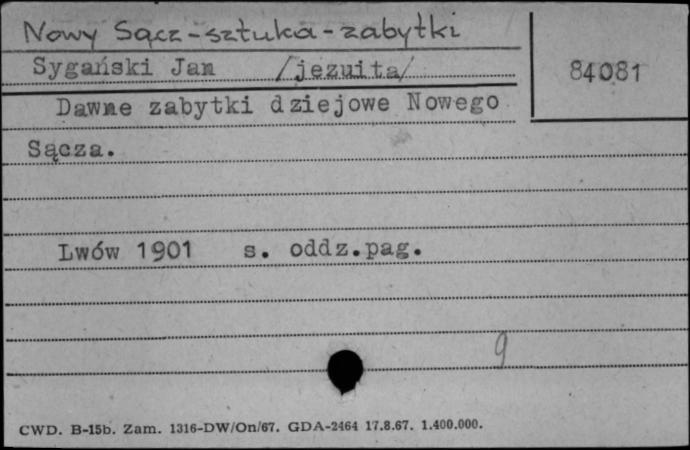 Nowy Sącz-sztuka-zabytki
Sygański Jan /jezuita/
84081
Dawne zabytki dziejowe Nowego
Sącza.
Lwów 1901 s. oddz.pag.
9
CWD. B-15b. Zam. 1316-DW/On/67. GDA-2464 17.8.67. 1.400.000.